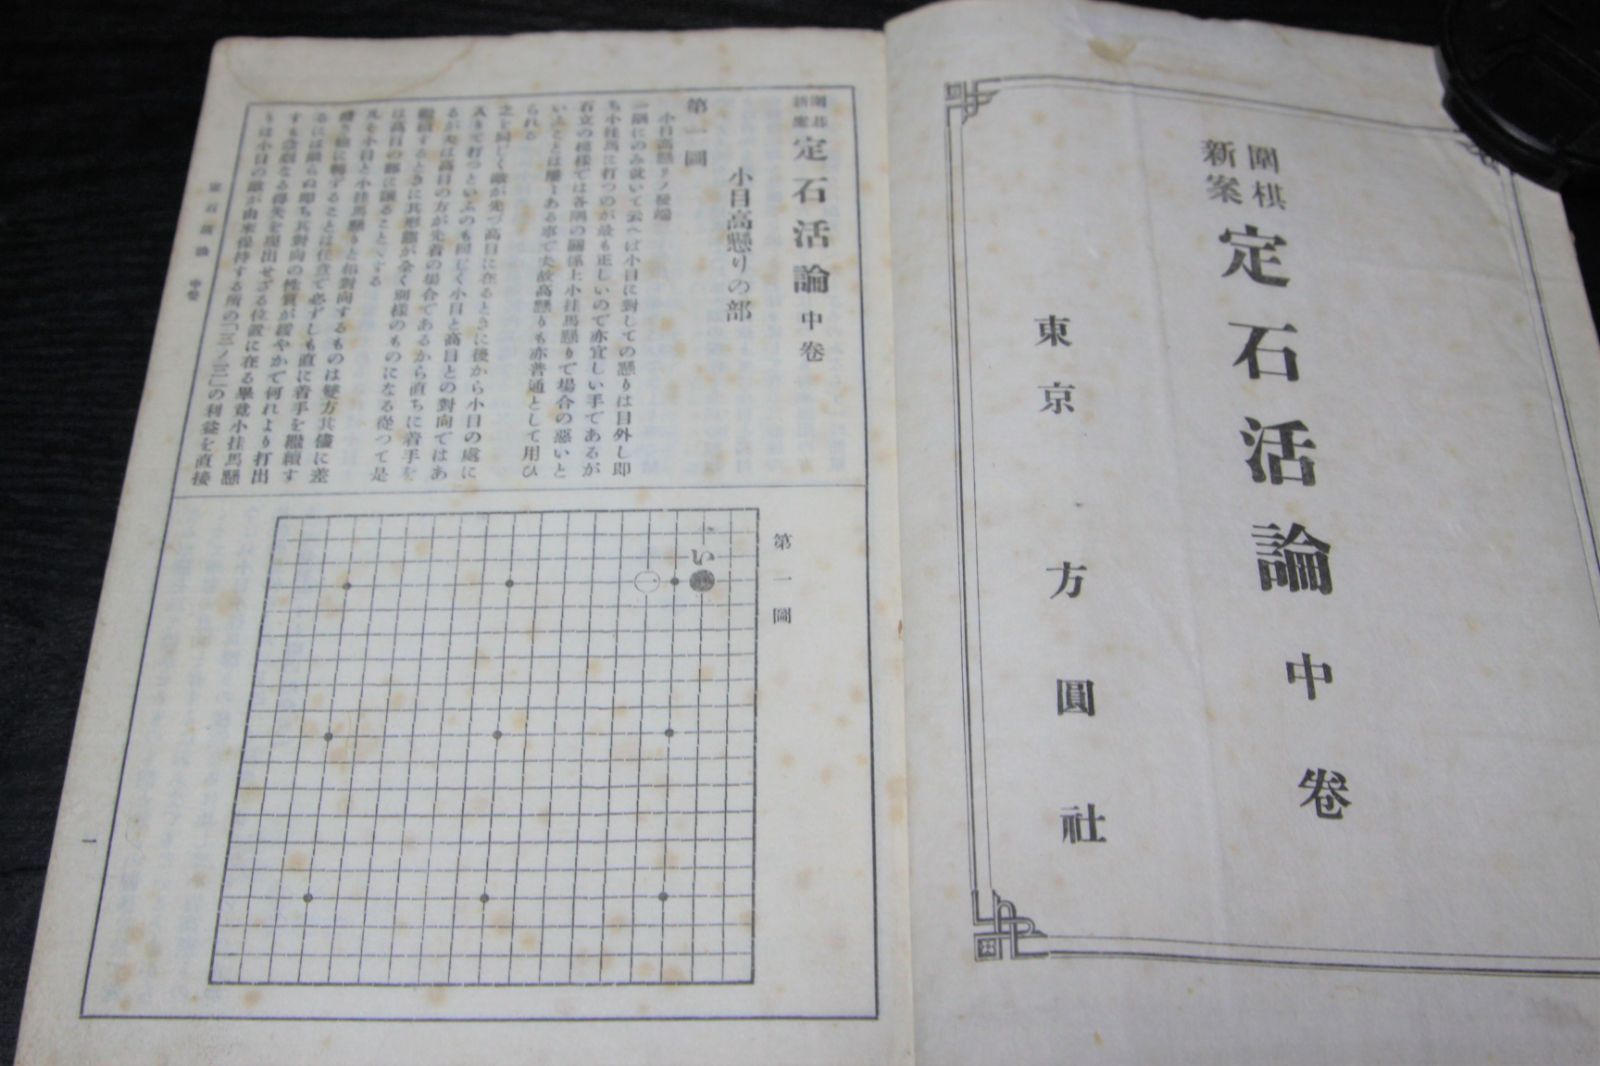 圍棋
新案
定石活論 中卷
東京 方圓社
圍碁
新案
定石活論 中卷
小目高懸りの部
第一圖
小目高懸リノ發端
一隅にのみ就いて云へば小目に對しての懸りは目外し即
ち小挂馬に打つのが最も正しいので亦宜しい手であるが
石立の模樣では各隅の關係上小挂馬懸りで場合の惡いと
いふことは
ある事で夫故高懸りも亦普通として用ひ
られる
之と同じく敵が先づ高目に在るときに後から小目の處に
入りて打つといふのも同じく小目と高目との對向ではあ
るが夫は高目の方が先着の場合であるから直ちに着手を
繼續するときに其形態が全く別樣のものになる從つて是
は高目の部に讓ることゝする
凡そ小目と小挂馬懸りと相對向するものは雙方共儘に差
置き他に轉ずることは任意で必ずしも直に着手を繼續す
るには限らぬ即ち其對向の性質が緩やかで何れより打出
すも急劇なる得失を現出せざる位置に在る畢竟小挂馬懸
りは小目の敵が由來保持する所の「三ノ三」の利益を直接
定石活論 中卷
第一圖
い
一
一